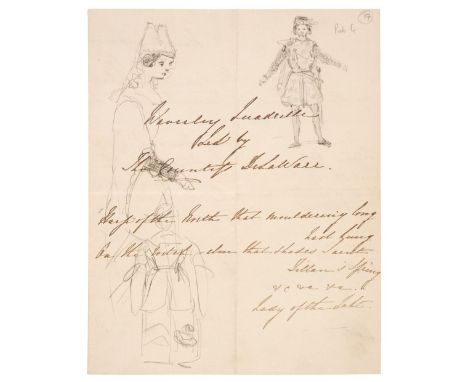 Waverley Quadrille
led by
The Countess DeLaWarr.
"Harp of the North that mouldering long
hast hung
On the witch-elm that shades Saint
Fillan's Spring
&c &c &c.
Lady of the Lake.